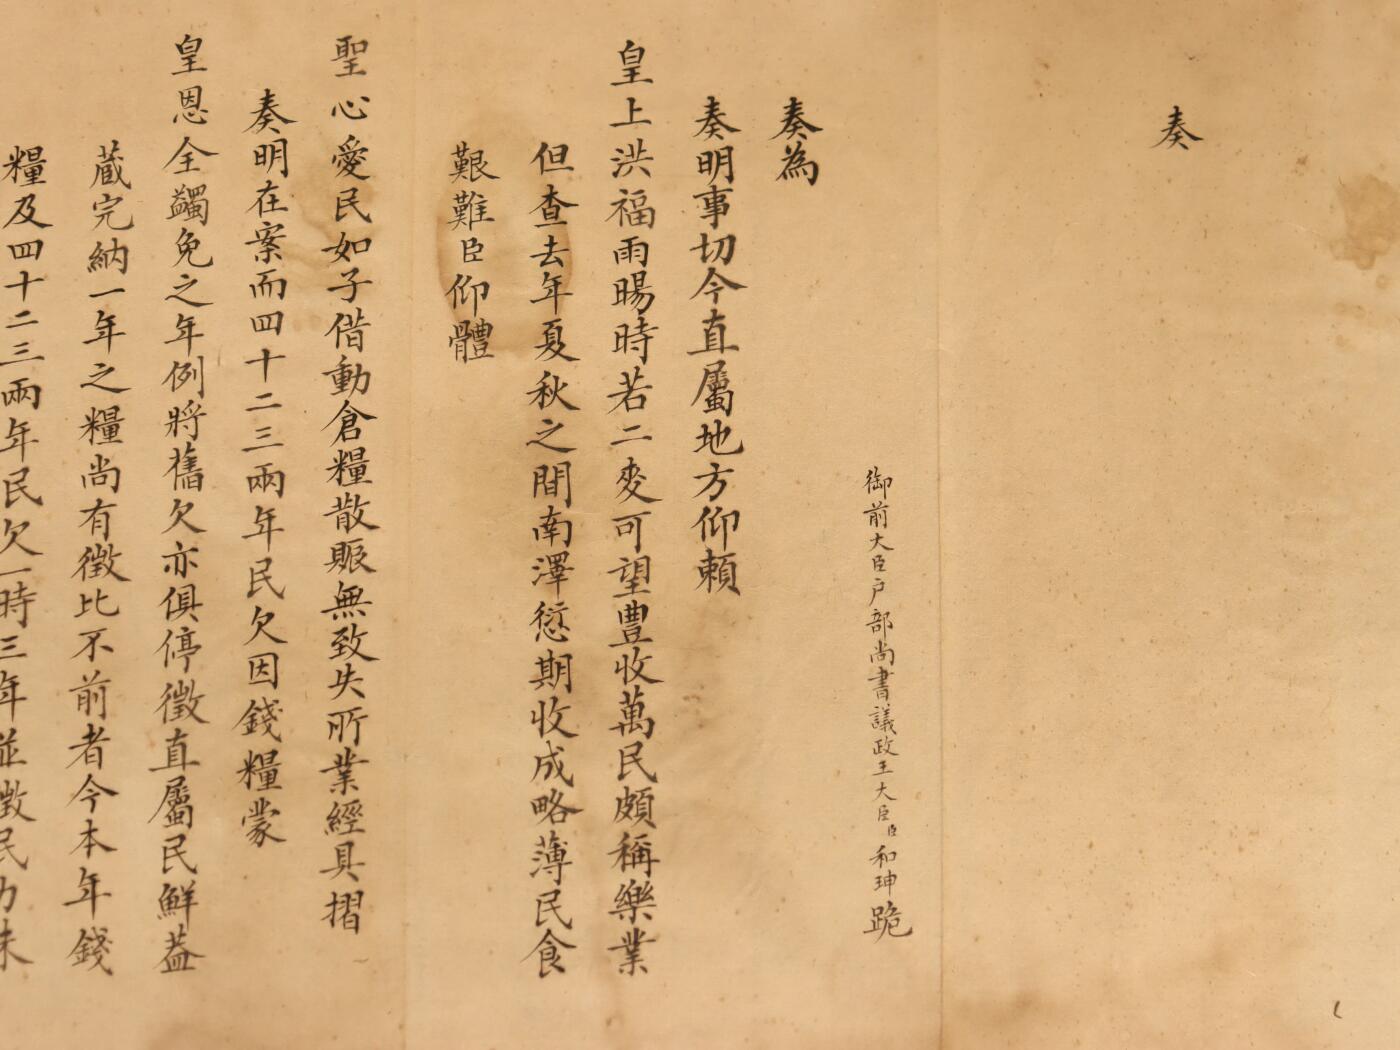 奏
御前大臣戶部尚書議政王大臣臣和珅跪
奏為
奏明事切今直屬地方仰賴
皇上洪福雨暘時若二麥可望豐收萬民頗稱樂業
但查去年夏秋之間南澤愆期收成略薄民食
艱難臣仰體
聖心愛民如子借動倉糧散賑無致失所業經具摺
奏明在案而四十二三兩年民欠因錢糧蒙
皇恩全蠲免之年例將舊欠亦俱停徵直屬民鮮蓋
蕆完納一年之糧尚有徵比不前者今本年錢
糧及四十二三兩年民欠一時三年並徵民力未